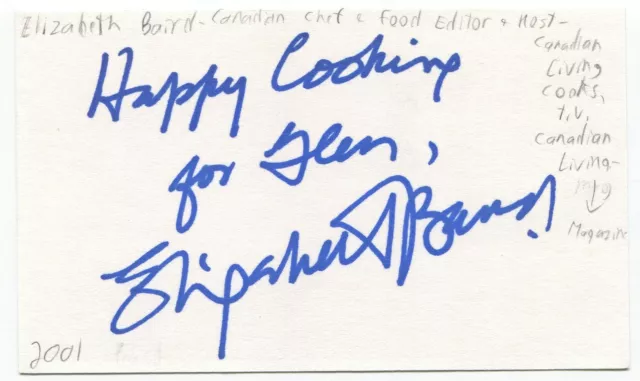 Elizabeth Baird - Canadian Chef & Food Editor & Host -
Canadian
Living
Cooks,
T.V.
Canadian
Living -
Magazine
Happy Cooking
for Glen,
Elizabeth Baird
2001